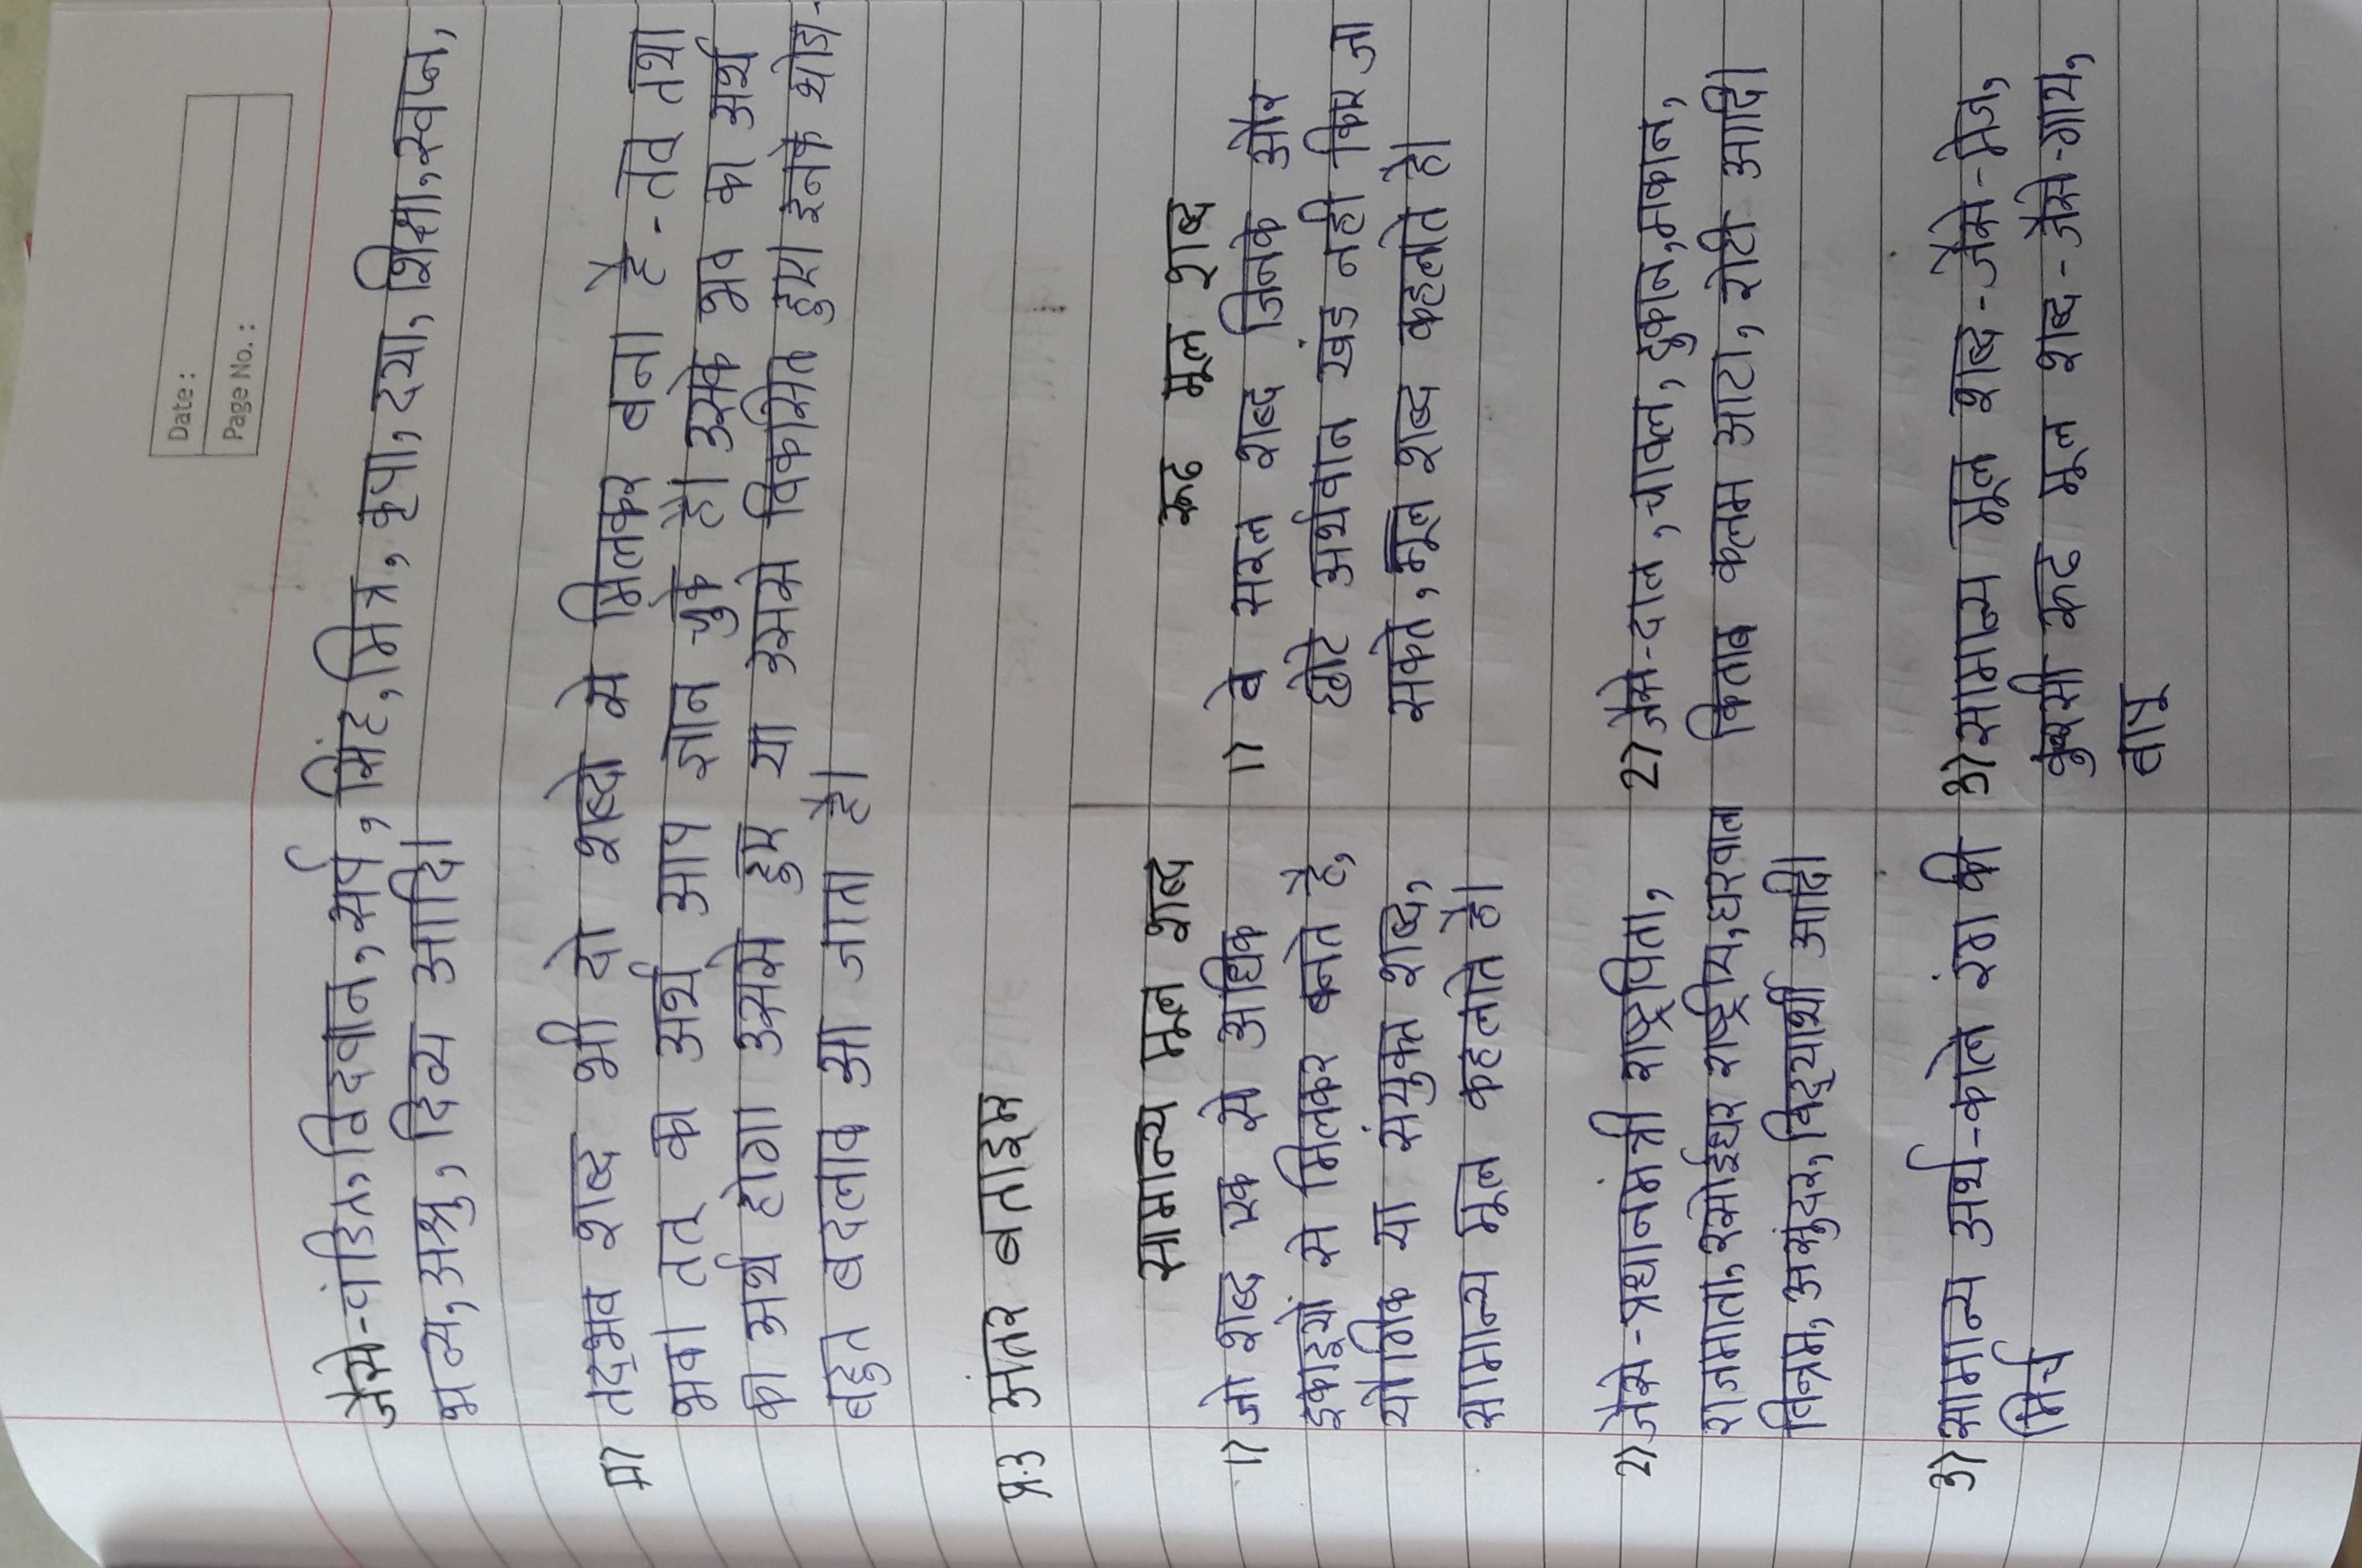 Date :
Page No. :
जैसे-पंडित, विद्वान, सर्प, सिंह, मित्र, कृपा, दया, शिक्षा, स्वप्न,
भव्य, अश्रु, दिव्य आदि।
तद्भव शब्द भी दो शब्दो से मिलकर बना है - तत् तथा
भव। तत् का अर्थ आप जान चुके है। उसके भव का अर्थ
का अर्थ होगा उससे हुए या उससे विकसित हुए। इनके थोडा-
बहुत बदलाव आ जाता है।
प्र.3 अंतर बताइए
सामान्य मूल शब्द
1) जो शब्द एक से अधिक
इकाइयों से मिलकर बनते है,
योगिक या संयुक्त शब्द,
सामान्य मूल कहलाते है।
2) जैसे-प्रधानमंत्री राष्ट्रपिता,
राजमाता, रसोईघर राष्ट्रीय, घरवाल
विनम्र, असुंदर, विद्यार्थी आदि।
3) सामान्य अर्थ-काले रंग की
मिर्च
रूढ मूल शब्द
1) वे सरल शब्द जिनके और
छोटे अर्थवान खंड नही किए जा
सकते, मूल शब्द कहलाते है।
2) जैसे-दाल, चावल, दुकान, मकान,
किताब कलम आटा, रोटी आदि।
3) सामान्य मूल शब्द-जैसे-मेज,
कुरसी रूढ मूल शब्द-जैसे-गाय,
वायु